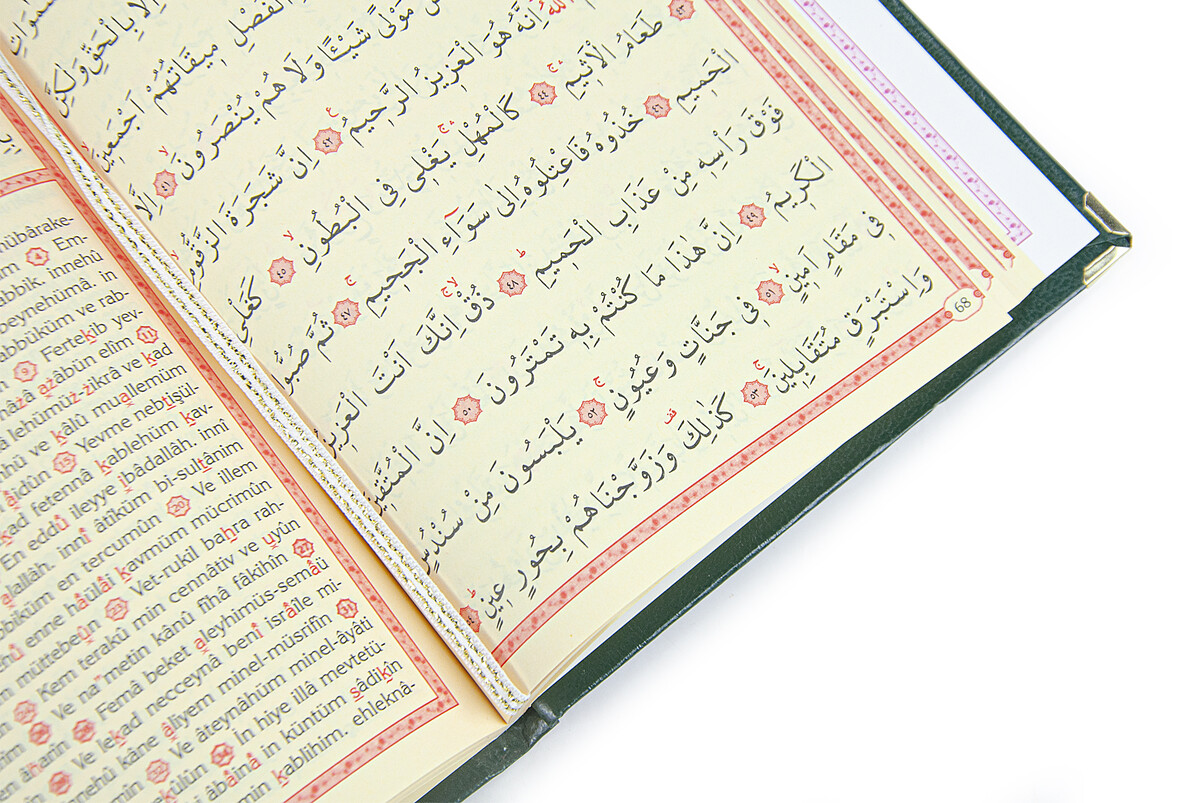 اِلَّا بِالْحَقِّ وَلٰكِنَّ
الْفَصْلِ مِيقَاتُهُمْ اَجْمَعِينَ
مَوْلًى شَيْـًٔا وَلَا هُمْ يُنْصَرُونَ ٤١ اِلَّا
اللّٰهُ اِنَّهُ هُوَ الْعَزِيزُ الرَّحِيمُ ٤٢ اِنَّ شَجَرَةَ الزَّقُّومِ
٤٣ طَعَامُ الْاَثِيمِ ٤٤ كَالْمُهْلِ يَغْلِي فِي الْبُطُونِ ٤٥ كَغَلْيِ
الْحَمِيمِ ٤٦ خُذُوهُ فَاعْتِلُوهُ اِلٰى سَوَٓاءِ الْجَحِيمِ ٤٧ ثُمَّ صُبُّوا
فَوْقَ رَاْسِهِ مِنْ عَذَابِ الْحَمِيمِ ٤٨ ذُقْ اِنَّكَ اَنْتَ الْعَزِيزُ
الْكَرِيمُ ٤٩ اِنَّ هٰذَا مَا كُنْتُمْ بِهِ تَمْتَرُونَ ٥٠ اِنَّ الْمُتَّقِينَ
فِي مَقَامٍ اَمِينٍ ٥١ فِي جَنَّاتٍ وَعُيُونٍ ٥٢ يَلْبَسُونَ مِنْ سُنْدُسٍ
وَاِسْتَبْرَقٍ مُتَقَابِلِينَ ٥٣ كَذٰلِكَ وَزَوَّجْنَاهُمْ بِحُورٍ عِينٍ ٥٤
68
mübârake-
4 Em-
rabbik. innehû
beynehümâ. in
rabbüküm ve rab-
9 Fertekib yev-
azâbün elîm 11
lehümüz-zikra ve kad
ve kâlû muallemüm
15 Yevme nebtişül-
kad fetennâ kablehüm kav-
En eddû ileyye ibâdallâh. innî
alallâh. innî âtîküm bi-sultânim
en tercumûn 20 Ve illem
enne hâülâi kavmüm mücrimûn
müttebeûn 23 Vet-rukil bahra rah-
Kem terakû min cennâtiv ve uyûn
Ve na"metin kânû fîhâ fâkihîn 27
28 Femâ beket aleyhimüs-semâü
Ve lekad necceynâ benî isrâîle mi-
kâne âliyem minel-müsrifîn 31
32 Ve âteynâhüm minel-âyâti
34 İn hiye illâ mevtetü-
âbâinâ in küntüm sâdikîn
min kablihim. ehleknâ-